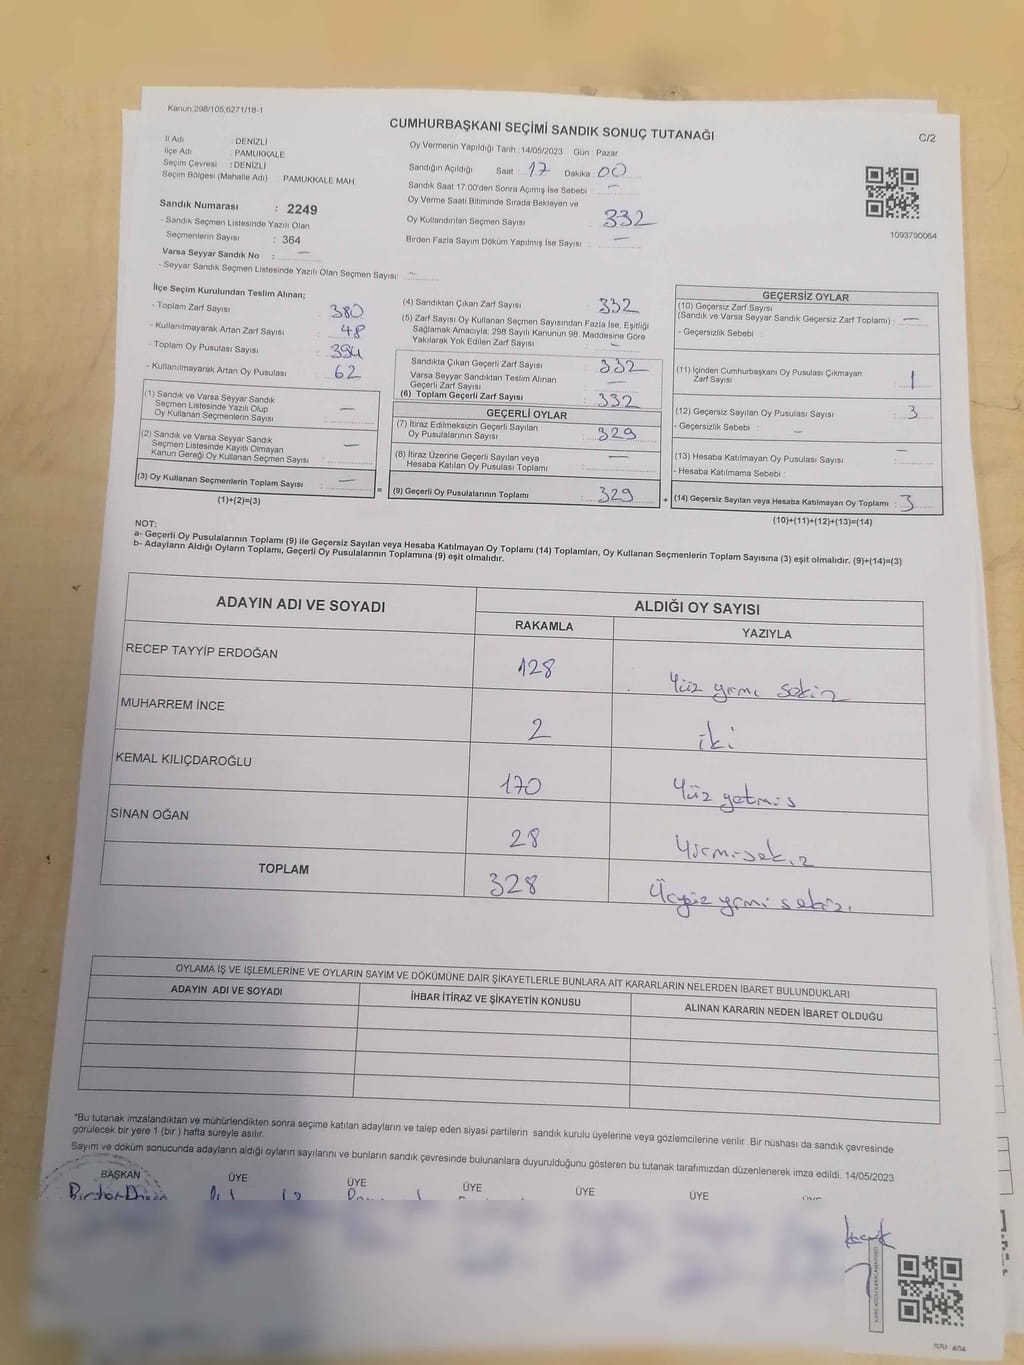 Kanun:298/105,6271/18-1
CUMHURBAŞKANI SEÇİMİ SANDIK SONUÇ TUTANAĞI
C/2
İl Adı : DENİZLİ
İlçe Adı : PAMUKKALE
Seçim Çevresi : DENİZLİ
Seçim Bölgesi (Mahalle Adı) : PAMUKKALE MAH.
Sandık Numarası : 2249
- Sandık Seçmen Listesinde Yazılı Olan
Seçmenlerin Sayısı : 364
Varsa Seyyar Sandık No : —
- Seyyar Sandık Seçmen Listesinde Yazılı Olan Seçmen Sayısı: —
Oy Vermenin Yapıldığı Tarih : 14/05/2023 Gün : Pazar
Sandığın Açıldığı Saat : 17 Dakika : 00
Sandık Saat 17.00'den Sonra Açımış İse Sebebi : —
Oy Verme Saati Bitiminde Sırada Bekleyen ve
Oy Kullandırılan Seçmen Sayısı : 332
Birden Fazla Sayım Döküm Yapılmış İse Sayısı : —
1093790064
İlçe Seçim Kurulundan Teslim Alınan;
- Toplam Zarf Sayısı : 380
- Kullanılmayarak Artan Zarf Sayısı : 48
- Toplam Oy Pusulası Sayısı : 394
- Kullanılmayarak Artan Oy Pusulası : 62
(1) Sandık ve Varsa Seyyar Sandık
Seçmen Listesinde Yazılı Olup
Oy Kullanan Seçmenlerin Sayısı : —
(2) Sandık ve Varsa Seyyar Sandık
Seçmen Listesinde Kayıtlı Olmayan
Kanun Gereği Oy Kullanan Seçmen Sayısı : —
(3) Oy Kullanan Seçmenlerin Toplam Sayısı : —
(1)+(2)=(3)
=
(4) Sandıktan Çıkan Zarf Sayısı : 332
(5) Zarf Sayısı Oy Kullanan Seçmen Sayısından Fazla İse, Eşitliği
Sağlamak Amacıyla; 298 Sayılı Kanunun 98. Maddesine Göre
Yakılarak Yok Edilen Zarf Sayısı : —
Sandıkta Çıkan Geçerli Zarf Sayısı : 332
Varsa Seyyar Sandıktan Teslim Alınan
Geçerli Zarf Sayısı : —
(6) Toplam Geçerli Zarf Sayısı : 332
GEÇERLİ OYLAR
(7) İtiraz Edilmeksizin Geçerli Sayılan
Oy Pusulalarının Sayısı : 329
(8) İtiraz Üzerine Geçerli Sayılan veya
Hesaba Katılan Oy Pusulası Toplamı : —
(9) Geçerli Oy Pusulalarının Toplamı : 329
+
GEÇERSİZ OYLAR
(10) Geçersiz Zarf Sayısı
(Sandık ve Varsa Seyyar Sandık Geçersiz Zarf Toplamı) : —
- Geçersizlik Sebebi :
(11) İçinden Cumhurbaşkanı Oy Pusulası Çıkmayan
Zarf Sayısı : 1
(12) Geçersiz Sayılan Oy Pusulası Sayısı : 3
- Geçersizlik Sebebi : —
(13) Hesaba Katılmayan Oy Pusulası Sayısı : —
- Hesaba Katılmama Sebebi :
(14) Geçersiz Sayılan veya Hesaba Katılmayan Oy Toplamı : 3
(10)+(11)+(12)+(13)=(14)
NOT:
a- Geçerli Oy Pusulalarının Toplamı (9) ile Geçersiz Sayılan veya Hesaba Katılmayan Oy Toplamı (14) Toplamları, Oy Kullanan Seçmenlerin Toplam Sayısına (3) eşit olmalıdır. (9)+(14)=(3)
b- Adayların Aldığı Oyların Toplamı, Geçerli Oy Pusulalarının Toplamına (9) eşit olmalıdır.
ADAYIN ADI VE SOYADI
ALDIĞI OY SAYISI
RAKAMLA YAZIYLA
RECEP TAYYİP ERDOĞAN 128 Yüz yrmi sekiz
MUHARREM İNCE 2 iki
KEMAL KILIÇDAROĞLU 170 Yüz yetmis
SİNAN OĞAN 28 Yirmisekiz
TOPLAM 328 Üçyüz yrmi sekiz
OYLAMA İŞ VE İŞLEMLERİNE VE OYLARIN SAYIM VE DÖKÜMÜNE DAİR ŞİKAYETLERLE BUNLARA AİT KARARLARIN NELERDEN İBARET BULUNDUKLARI
ADAYIN ADI VE SOYADI İHBAR İTİRAZ VE ŞİKAYETİN KONUSU ALINAN KARARIN NEDEN İBARET OLDUĞU
*Bu tutanak imzalandıktan ve mühürlendikten sonra seçime katılan adayların ve talep eden siyasi partilerin sandık kurulu üyelerine veya gözlemcilerine verilir .Bir nüshası da sandık çevresinde
görülecek bir yere 1 (bir ) hafta süreyle asılır.
Sayım ve döküm sonucunda adayların aldığı oyların sayılarını ve bunların sandık çevresinde bulunanlara duyurulduğunu gösteren bu tutanak tarafımızdan düzenlenerek imza edildi. 14/05/2023
BAŞKAN ÜYE ÜYE ÜYE ÜYE ÜYE